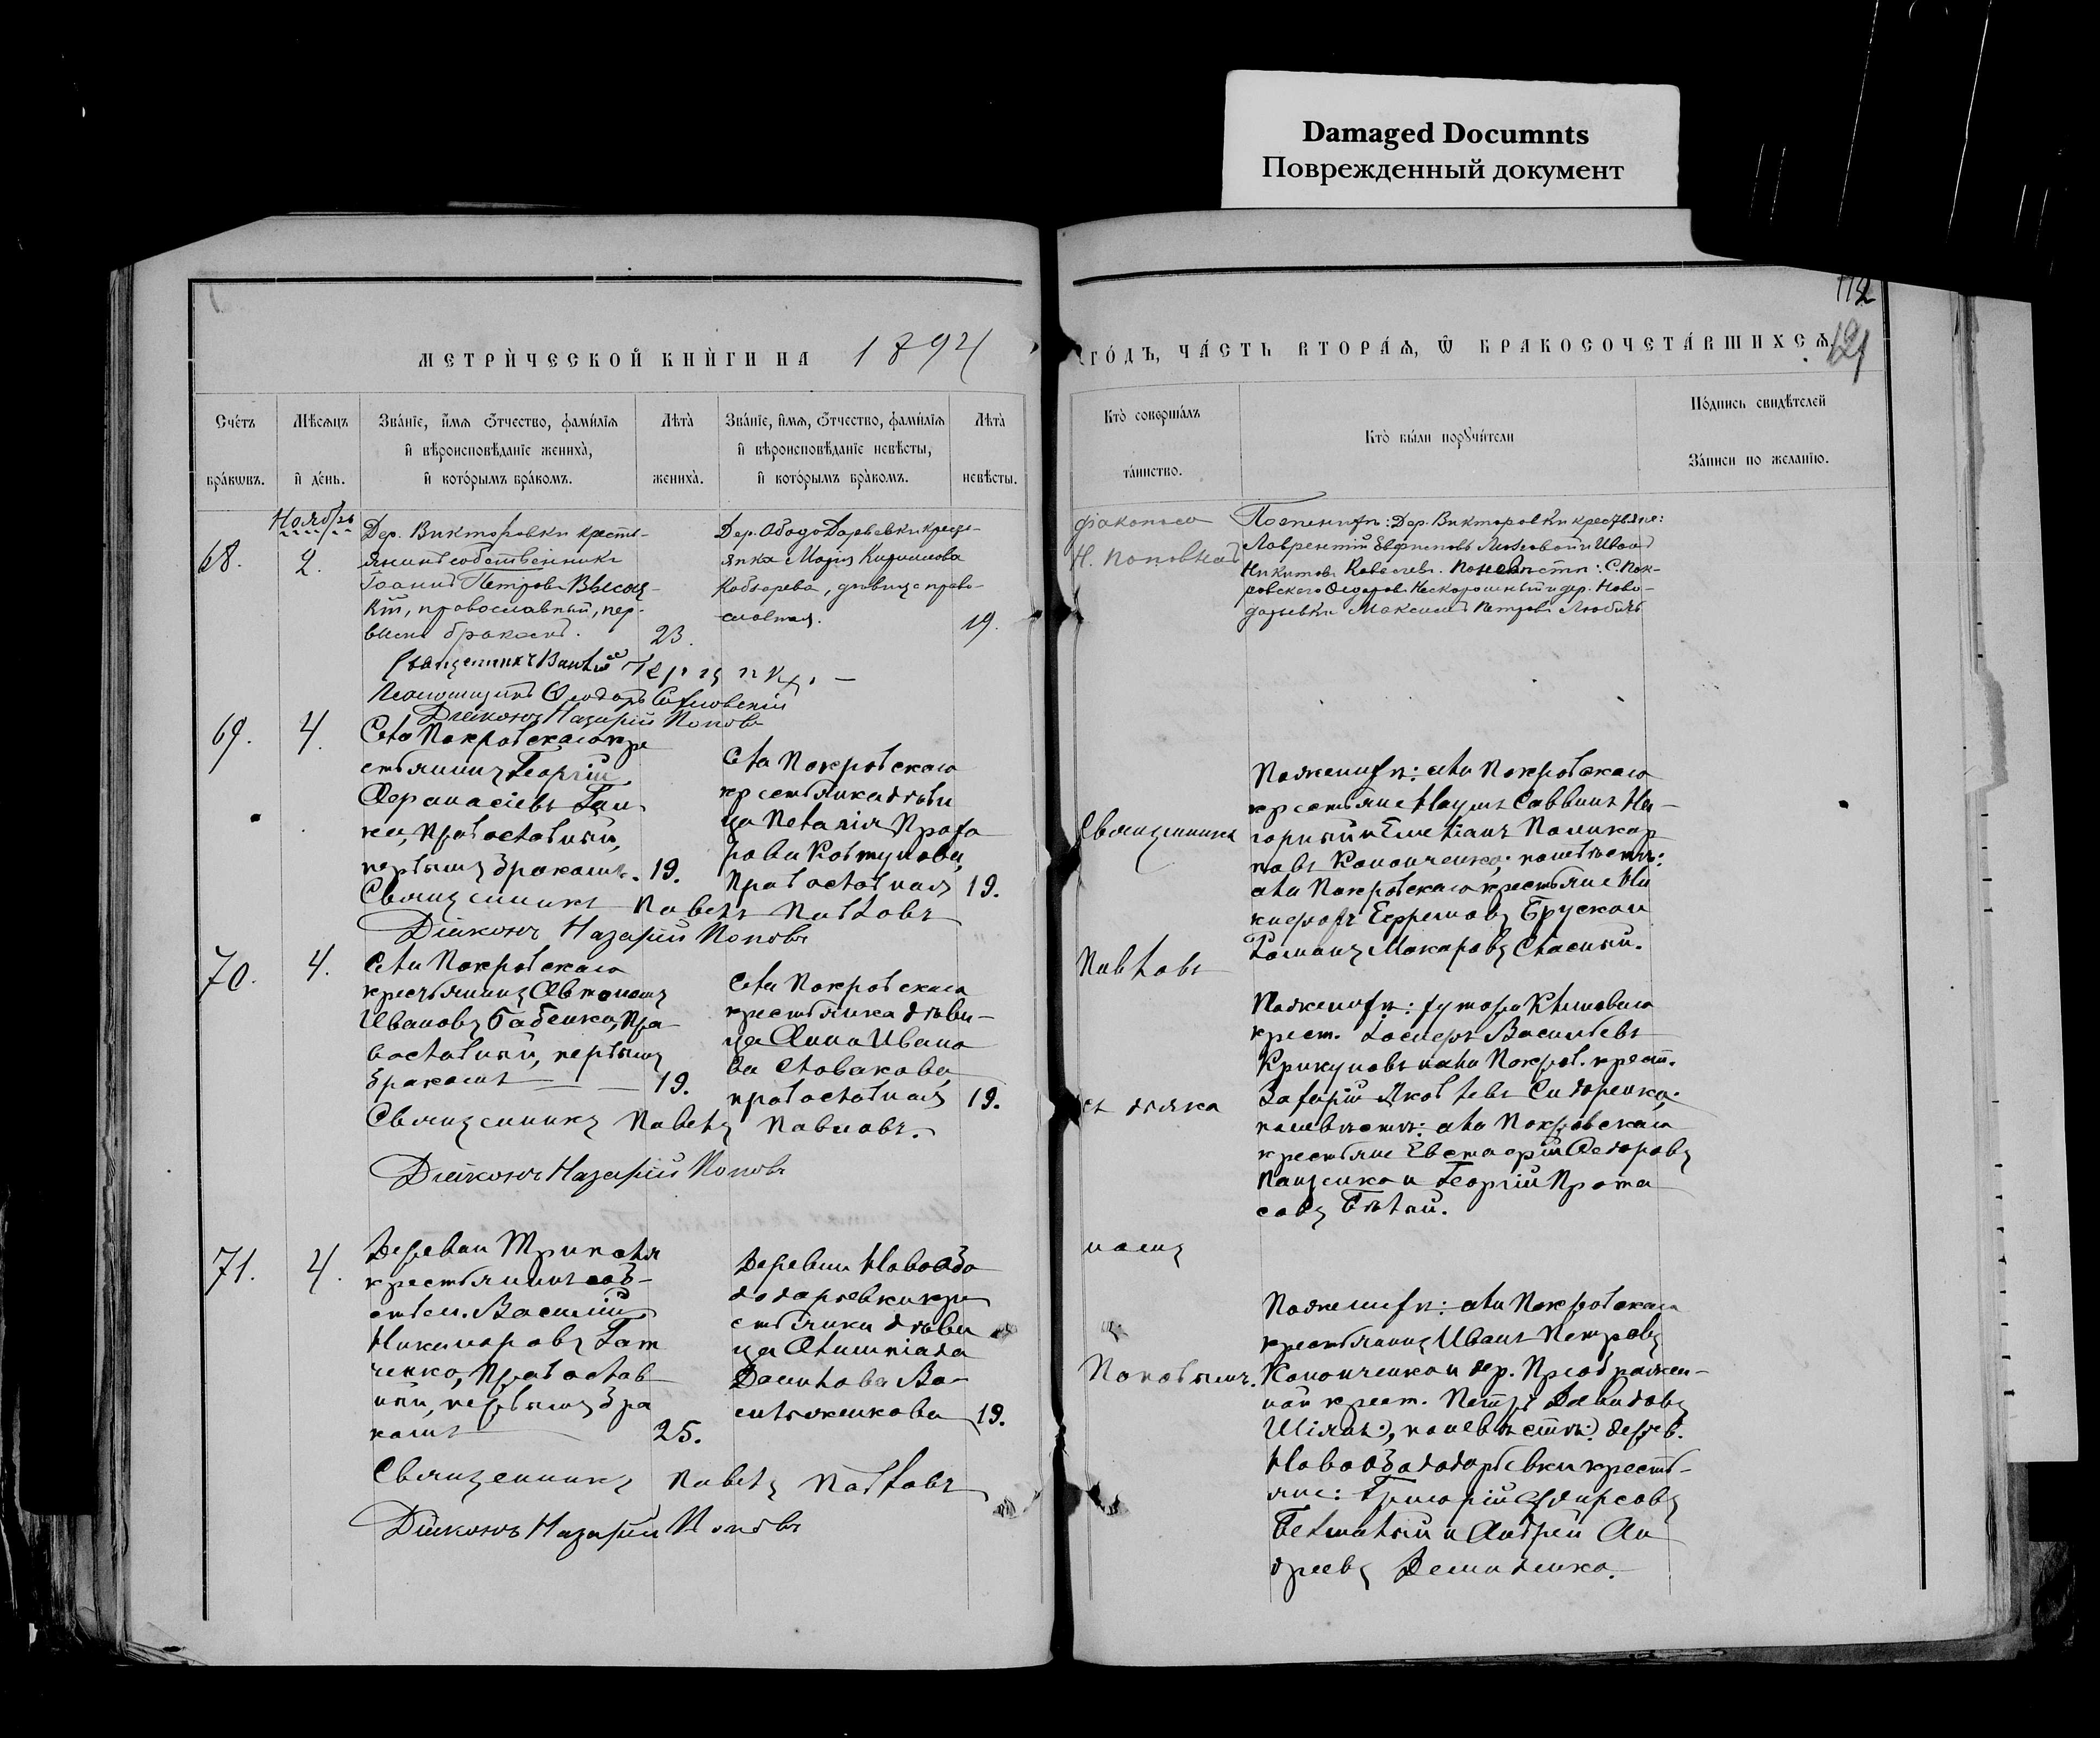 Damaged Documnts
Поврежденный документ
112
МЕТРИ́ЧЕСКОЙ КНИ́ГИ НА 1894
ГО́ДЪ, ЧА́СТЬ ВТОРА́Ѧ, Ѿ БРАКОСОЧЕТА́ВШИХСѦ.
121
Сче́тъ
бра́кѡвъ.
Мѣ́сѧцъ
и҆ де́нь.
Зва́нїе, и҆́мѧ ѻ҆́тчество, фами́лїѧ
и҆ вѣроисповѣ́данїе жениха̀,
и҆ кото́рымъ бра́комъ.
Лѣ́та
жениха̀.
Зва́нїе, и҆́мѧ, ѻ҆́тчество, фами́лїѧ
и҆ вѣроисповѣ́данїе невѣ́сты,
и҆ кото́рымъ бра́комъ.
Лѣ́та
невѣ́сты.
Кто̀ соверша́лъ
та́инство.
Кто̀ бы́ли порꙋчи́тели
По́дпись свидѣ́телей
За́писи по жела́нїю.
Ноябрь
68.
2.
Дер. Викторовки кресть-
янинъ собственникъ
Іоаннъ Петровъ Высоц-
кій, православный, пер-
вымъ бракомъ.
23.
Дер. Ободо Дарьевки кресть-
янка Марія Кирилова
Кобзарева, дѣвица право-
славная.
19.
діакономъ
Н. Поповымъ
По женихѣ: Дер. Викторовки крестьяне:
Лаврентій и Иванъ
Никитовъ Ковалевъ. По невѣстѣ: С. Пок-
ровскаго Ѳедоръ Нескорошный и дер. Ново-
дарьевки Максимъ Петровъ Любичъ
Священникъ
Помощникъ Ѳеодоръ
Діаконъ Назарій Поповъ
69.
4.
Села Покровскаго кре
стьянинъ Георгій
Аѳанасіевъ
православный,
первымъ бракомъ. 19.
Села Покровскаго
крестьянка дѣви
ца Пелагія Прохо
рова Ковтунова,
православная 19.
Священника
По женихѣ: села Покровскаго
крестьяне Наумъ Саввинъ На-
горный и Емеліанъ Поликар
повъ Кононченко; по невѣстѣ:
села Покровскаго крестьяне Ни
кифоръ Ефремовъ Бруско и
Романъ Макаровъ Спасный.
Священникъ Павелъ Павловъ
Діаконъ Назарій Поповъ
70.
4.
Села Покровскаго
крестьянинъ Автономъ
Ивановъ Бабенко, пра-
вославный, первымъ
бракомъ 19.
Села Покровскаго
крестьянка дѣви-
ца Анна Ивано
ва Словакова
православная 19.
Павловъ
По женихѣ: хутора Климоваго
крест. Василіевъ
Крикуновъ и села Покров. крест.
Захарій Яковлевъ Сидоренко;
по невѣстѣ: села Покровскаго
крестьяне Евстафій Ѳедоровъ
Пащенко и Георгій Прота
совъ Бѣлый.
съ діяко
номъ
Священникъ Павелъ Павловъ.
Діаконъ Назарій Поповъ
71.
4.
Деревни Триполья
крестьянинъ соб-
ствен. Василій
Никаноровъ Гат
ченко, православ
ный, первымъ бра
комъ 25.
Деревни Новообо
додарьевки кре
стьянка дѣви
ца Олимпіада
Данилова Ва-
сильженкова 19.
Поповымъ.
По женихѣ: села Покровскаго
крестьянинъ Иванъ Петровъ
Кононченко и дер. Преображен-
ной крест. Петръ Давидовъ
Шіянъ; по невѣстѣ: дерев.
Новообододарьевки кресть-
яне: Григорій Фирсовъ
и Андрей Ан
дреевъ Демиденко.
Священникъ Павелъ Павловъ
Діаконъ Назарій Поповъ